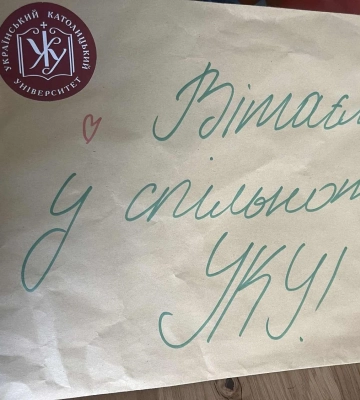 УКРАЇНСЬКИЙ КАТОЛИЦЬКИЙ УНІВЕРСИТЕТ
УКУ
Вітаєм
у спільнот
УКУ!